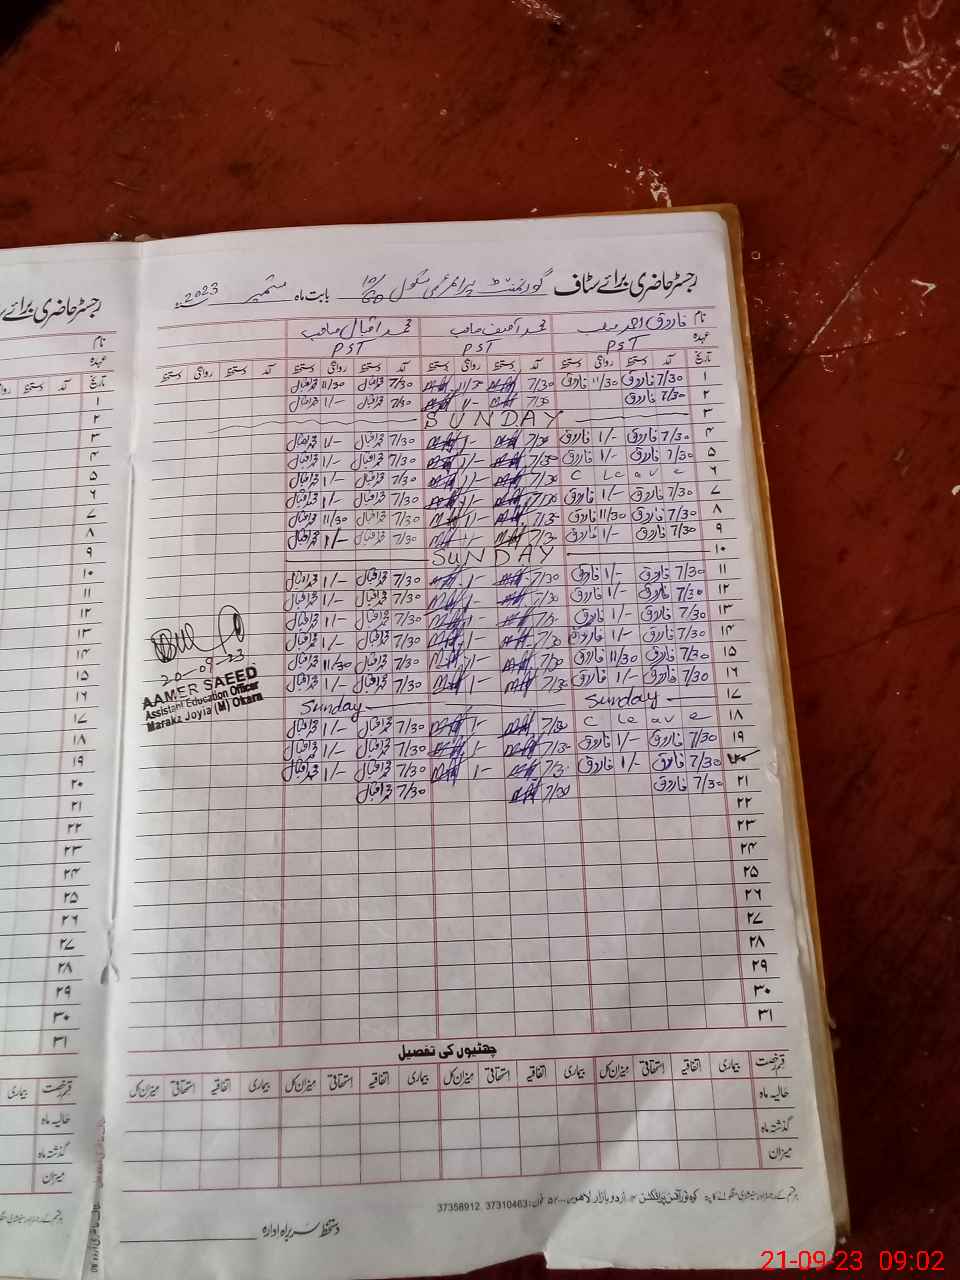 رجسٹر حاضری برائے سٹاف گورنمنٹ پرائمری سکول بابت ماہ ستمبر 2023ء
نام فاروق احمد صاحب محمد آصف صاحب محمد اقبال صاحب
عہدہ PST PST PST
تاریخ آمد دستخط روانگی دستخط آمد دستخط روانگی دستخط آمد دستخط روانگی دستخط آمد دستخط روانگی دستخط
۱ 7/30 فاروق 11/30 فاروق 7/30 7/30 اقبال 11/30 اقبال
۲ 7/30 فاروق 7/30 1/- 7/30 اقبال 1/- اقبال
۳ SUNDAY
۴ 7/30 فاروق 1/- فاروق 7/30 1/- 7/30 اقبال 1/- اقبال
۵ 7/30 فاروق 1/- فاروق 7/30 1/- 7/30 اقبال 1/- اقبال
۶ C Leave 7/30 1/- 7/30 اقبال 1/- اقبال
۷ 7/30 فاروق 1/- فاروق 7/30 1/- 7/30 اقبال 1/- اقبال
۸ 7/30 فاروق 11/30 فاروق 7/30 7/30 اقبال 11/30 اقبال
۹ 7/30 فاروق 1/- فاروق 7/30 1/- 7/30 اقبال 1/- اقبال
۱۰ SUNDAY
۱۱ 7/30 فاروق 1/- فاروق 7/30 1- 7/30 اقبال 1/- اقبال
۱۲ 7/30 فاروق 1/- فاروق 7/30 1- 7/30 اقبال 1/- اقبال
۱۳ 7/30 فاروق 1/- فاروق 7/30 1- 7/30 اقبال 1/- اقبال
۱۴ 7/30 فاروق 1/- فاروق 7/30 1- 7/30 اقبال 1/- اقبال
۱۵ 7/30 فاروق 11/30 فاروق 7/30 7/30 اقبال 11/30 اقبال
۱۶ 7/30 فاروق 1/- فاروق 7/30 1- 7/30 اقبال 1/- اقبال
۱۷ Sunday Sunday
۱۸ C Leave 7/30 1- 7/30 اقبال 1/- اقبال
۱۹ 7/30 فاروق 1/- فاروق 7/30 1- 7/30 اقبال 1/- اقبال
۲۰ 7/30 فاروق 1/- فاروق 7/30 1- 7/30 اقبال 1/- اقبال
۲۱ 7/30 فاروق 7/30 7/30 اقبال
۲۲
۲۳
۲۴
۲۵
۲۶
۲۷
۲۸
۲۹
۳۰
۳۱
20-09-23
AAMER SAEED
Assistant Education Officer
Maraka Joyia (M) Okara
چھٹیوں کی تفصیل
قسم رخصت بیماری اتفاقیہ استحقاقی میزان کل بیماری اتفاقیہ استحقاقی میزان کل بیماری اتفاقیہ استحقاقی میزان کل
حالیہ ماہ
گذشتہ ماہ
میزان
اردو بازار لاہور فون: 37310463, 37358912
دستخط سربراہ ادارہ
رجسٹر حاضری برائے
نام
عہدہ
تاریخ آمد دستخط
۱
۲
۳
۴
۵
۶
۷
۸
۹
۱۰
۱۱
۱۲
۱۳
۱۴
۱۵
۱۶
۱۷
۱۸
۱۹
۲۰
۲۱
۲۲
۲۳
۲۴
۲۵
۲۶
۲۷
۲۸
۲۹
۳۰
۳۱
قسم رخصت بیماری
حالیہ ماہ
گذشتہ ماہ
میزان
21-09-23 09:02